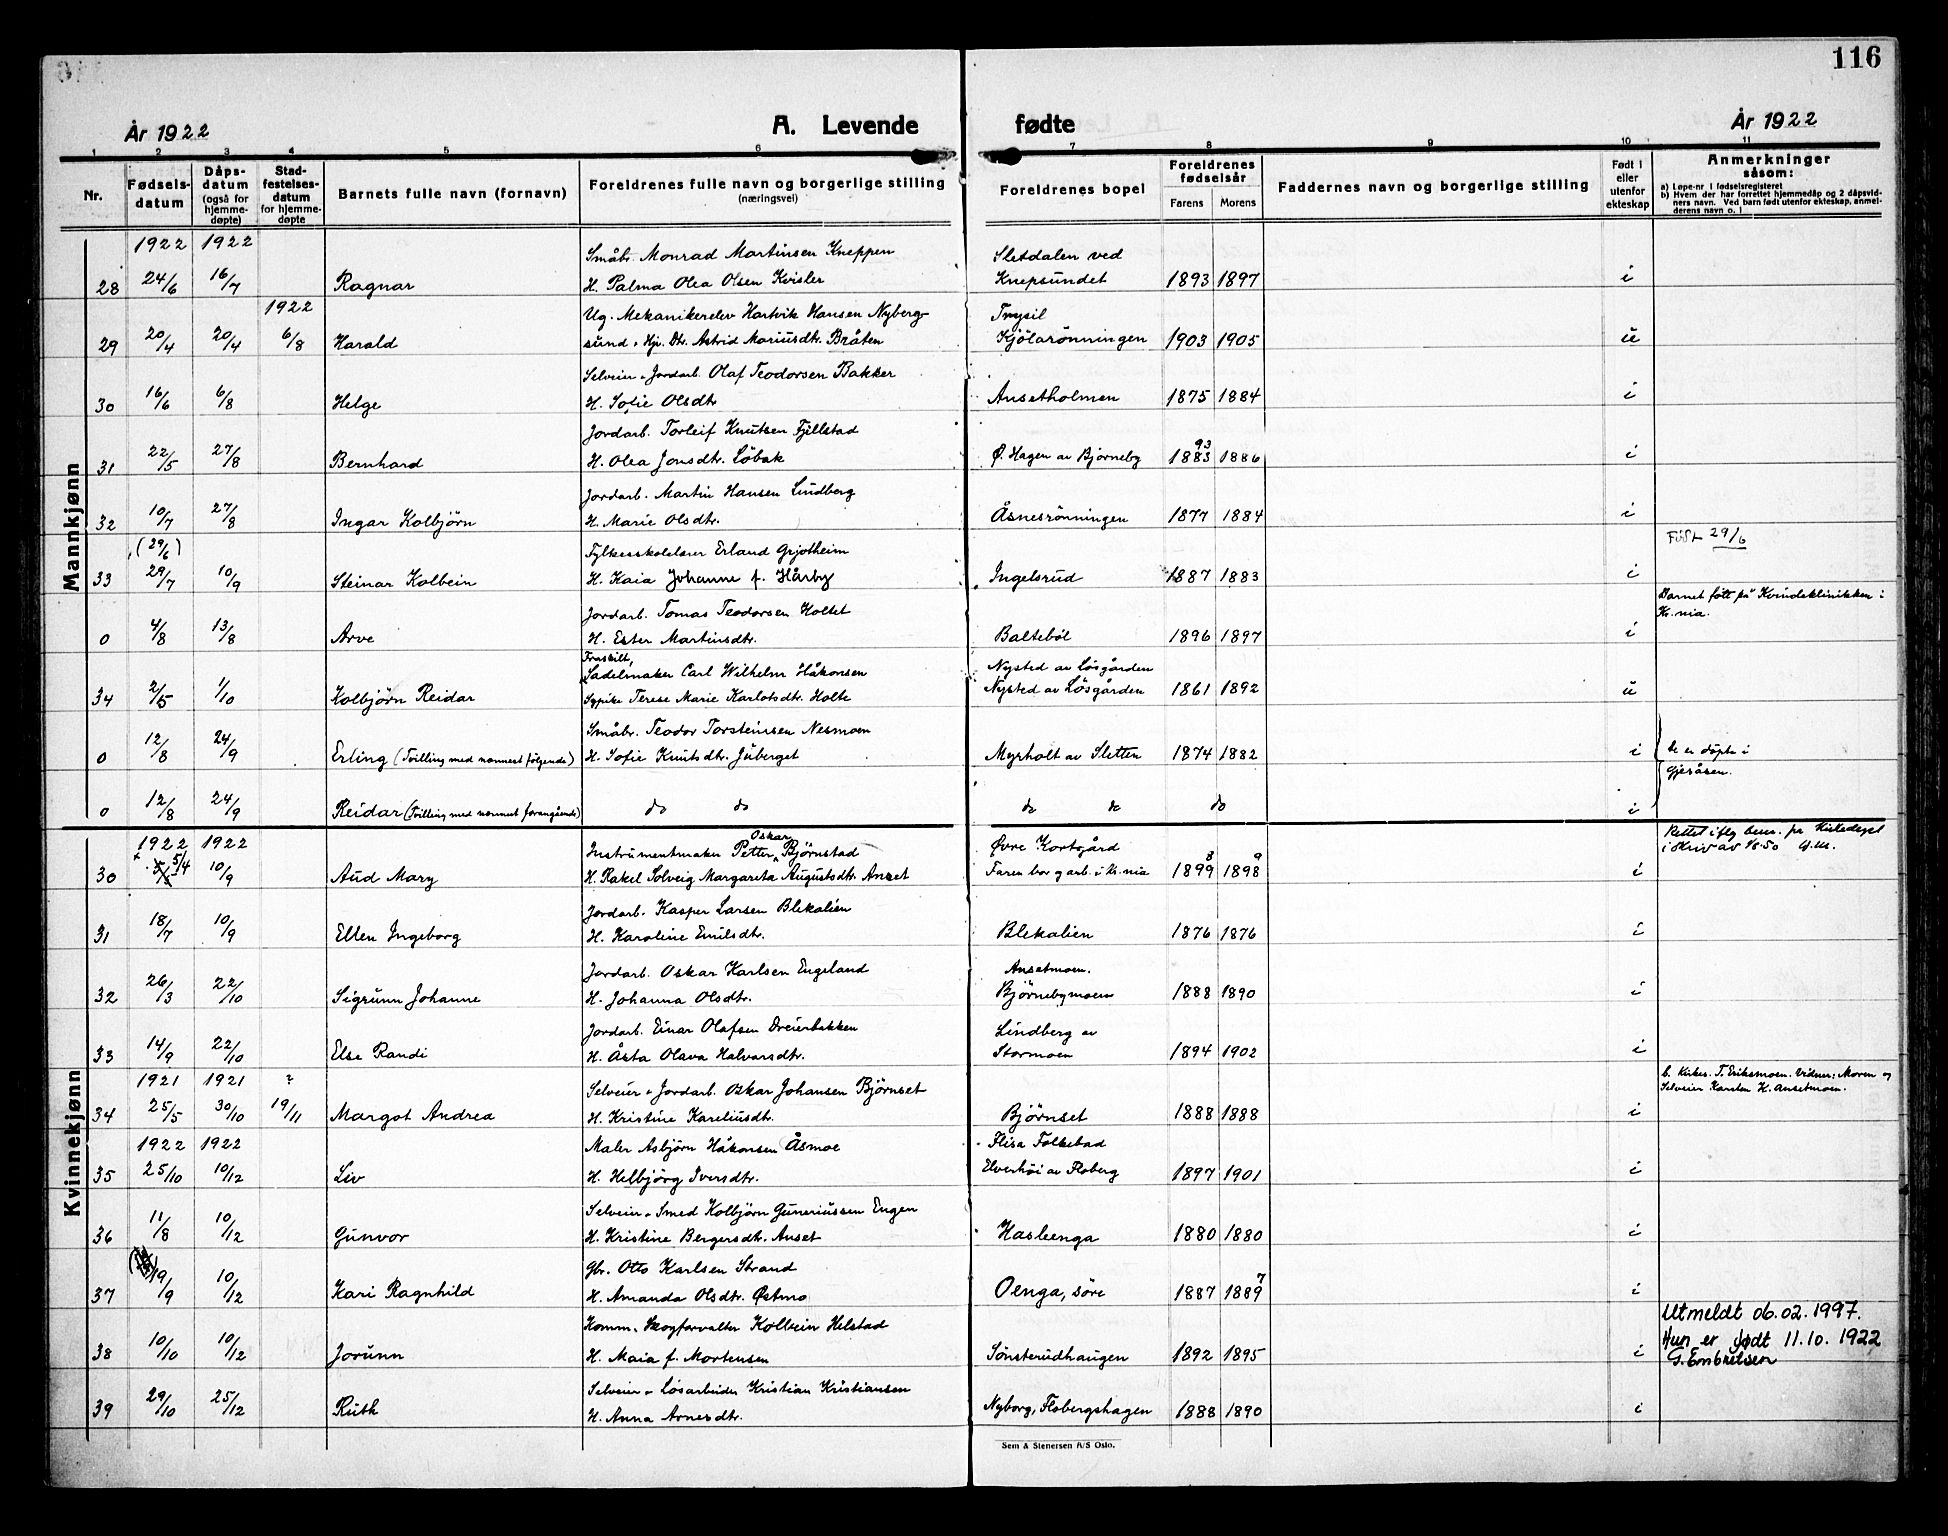 116
År 1922
A. Levende fødte
År 1922
1 2 3 4 5 6 7 8 9 10 11
Nr.
Fødsels-
datum
Dåps-
datum
(også for
hjemme-
døpte)
Stad-
festelses-
datum
for hjemme-
døpte
Barnets fulle navn (fornavn)
Foreldrenes fulle navn og borgerlige stilling
(næringsvei)
Foreldrenes bopel
Foreldrenes
fødselsår
Farens Morens
Faddernes navn og borgerlige stilling
Født i
eller
utenfor
ekteskap
Anmerkninger
såsom:
a) Løpe-nr i fødselsregisteret
b) Hvem der har forrettet hjemmedåp og 2 dåpsvid-
ners navn. Ved barn født utenfor ekteskap, anmel-
derens navn o. l.
Mannkjønn
1922 1922 Småbr. Monrad Martinsen Kneppen Sletdalen ved
28 24/6 16/7 Ragnar H. Palma Olea Olsen Kvisler Knepsundet 1893 1897 i
1922 Ug. Mekanikerelev Hartvik Hansen Nyberg- Trysil
29 20/4 20/4 6/8 Harald sund, Hj. Dtr. Astrid Mariusdtr. Bråten Kjölarönningen 1903 1905 u
Selveier, Jordarb. Olaf Teodorsen Bakker
30 16/6 6/8 Helge H. Sofie Olsdtr Ansetholmen 1875 1884 i
Jordarb. Torleif Knutsen Fjellstad 93
31 22/5 27/8 Bernhard H. Olea Jonsdtr. Löbak Ø. Hagen av Björneby 1883 1886 i
Jordarb. Martin Hansen Lindberg
32 10/7 27/8 Ingar Kolbjörn H. Marie Olsdtr. Åsnesrönningen 1877 1884 i
(29/6) Fylkesskolelærer Erland Grjotheim Föst 29/6
33 29/7 10/9 Steinar Kolbein H. Kaia Johanne f. Hårby Ingelsrud 1887 1883 i
Jordarb. Tomas Teodorsen Holtet Barnet fött på Kvindeklinikken i
Kr.nia.
0 4/8 13/8 Arve H. Ester Martinsdtr. Baltebøl 1896 1897 i
Fraskilt,
Sadelmaker Carl Wilhelm Håkonsen Nysted av Lösgården
34 2/5 1/10 Kolbjörn Reidar Sypike Terese Marie Karlotsdtr. Holte Nysted av Lösgården 1861 1892 u
Småbr. Teodor Torsteinsen Nesmoen
0 12/8 24/9 Erling (Tvilling med nærmest fölgende) H. Sofie Knutsdtr. Juberget Myrholt av Sletten 1874 1882 i De er döpte i
Gjesåsen.
0 12/8 24/9 Reidar (Tvilling med nærmest forangående) do do do do do i
Kvinnekjønn
1922 1922 Instrumentmaker Petter Oskar Björnstad Øvre Kortgård Rettet iflg
30 5/4 10/9 Aud Mary H. Rakel Solveig Margareta Augustsdtr. Anset Faren bor og arb. i Kr.nia 1899 8 1898 9 i
Jordarb. Kasper Larsen Blekalien
31 18/7 10/9 Ellen Ingeborg H. Karoline Emilsdtr. Blekalien 1876 1876 i
Jordarb. Oskar Karlsen Engeland Ansetmoen.
32 26/3 22/10 Sigrunn Johanne H. Johanna Olsdtr. Björnebymoen 1888 1890 i
Jordarb. Einar Olafsen Dreierbakken Lindberg av
33 14/9 22/10 Else Randi H. Åsta Olava Halvorsdtr. Stormoen 1894 1902 i
1921 1921 ? Selveier, Jordarb. Oskar Johansen Björnset b. Kirkes. T. Eriksmoen. Vidner: Moren og
Selveier Karsten H. Ansetmoen.
34 25/5 30/10 19/11 Margot Andrea H. Kristine Kareliusdt. Björnset 1888 1888 i
1922 1922 Maler Asbjörn Håkonsen Åsmoe Flisa Folkebad
35 25/10 10/12 Liv H. Helbjörg Iversdtr. Elverhöi av Floberg 1897 1901 i
Selveier, Smed Kolbjörn Guneriussen Engen
36 11/8 10/12 Gunvor H. Kristine Bergersdtr. Anset Hasleenga 1880 1880 i
Gbr. Otto Karlsen Strand 7
37 19/9 10/12 Kari Ragnhild H. Amanda Olsdtr. Østmo Oenga, söre 1887 1889 i
Komm. Skogforvalter Kolbein Helstad Utmeldt 06.02.1997.
Hun er født 11.10.1922
G. Embretsen
38 10/10 10/12 Jorunn H. Maia f. Mortensen Sönsterudhaugen 1892 1895 i
Selveier, Lösarbeider Kristian Kristiansen
39 29/10 25/12 Ruth H. Anna Arnesdtr. Nyborg, Flobergshagen 1888 1890 i
Sem & Stenersen A/S Oslo.